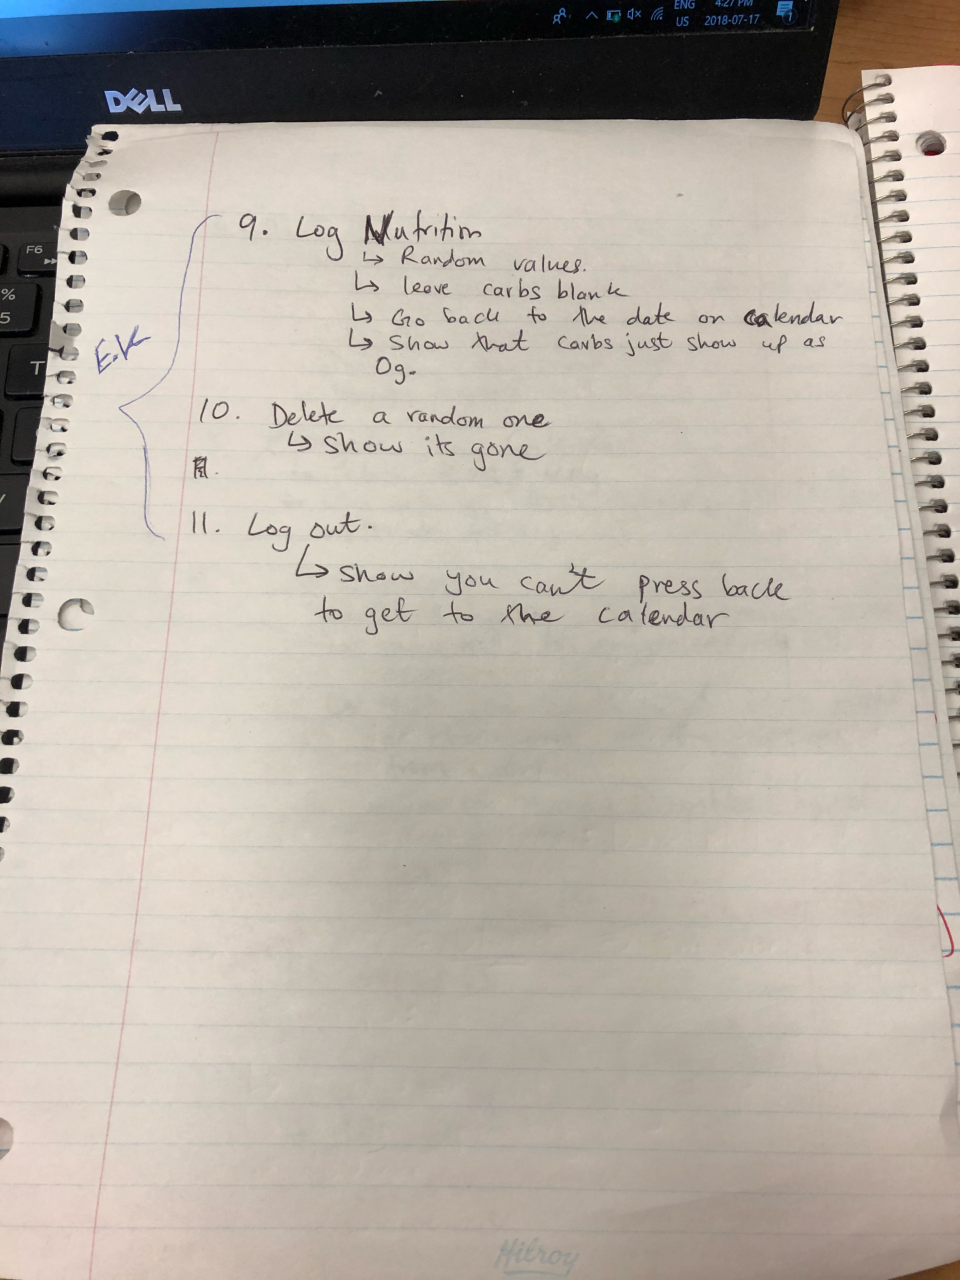 ENG 4:27 PM
US 2018-07-17
1
DELL
F6
%
5
T
9. Log Nutrition
↳ Random values.
↳ leave carbs blank
↳ Go back to the date on calendar
↳ Show that carbs just show up as
0g.
E.K
10. Delete a random one
↳ show its gone
11. Log out.
↳ show you can't press back
to get to the calendar
Hilroy